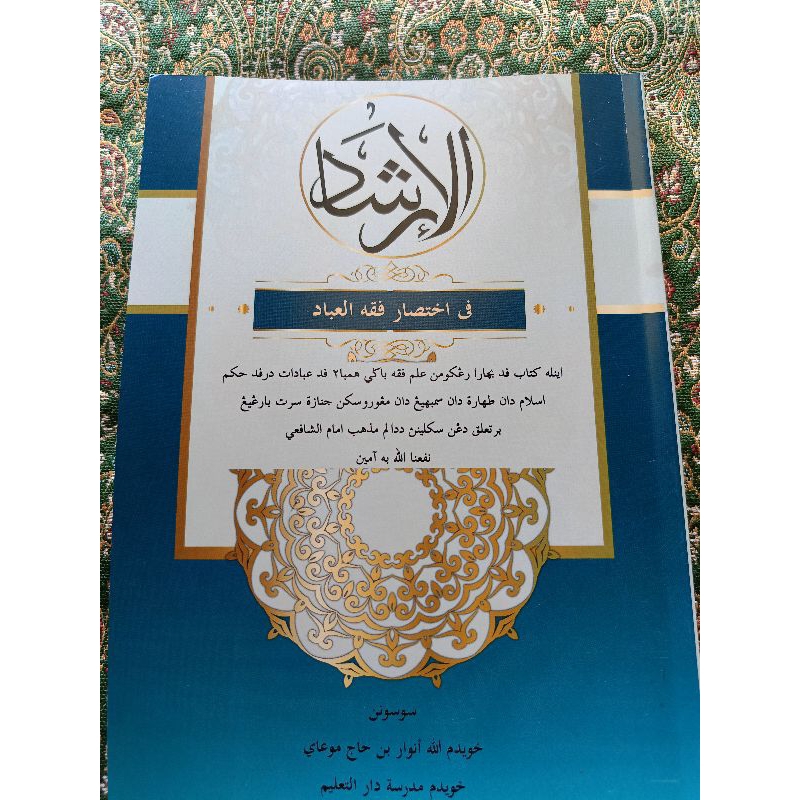 الإرشاد
فى اختصار فقه العباد
اينله كتاب ڤد بهارا رڠكومن علم فقه باݢي همبا٢ ڤد عبادات درفد حكم
اسلام دان طهارة دان سمبهيڠ دان مڠوروسكن جنازة سرت بارڠيڠ
برتعلق دڠن سكلينن ددالم مذهب امام الشافعي
نفعنا الله به آمين
سوسونن
خويدم الله أنوار بن حاج موعاي
خويدم مدرسة دار التعليم